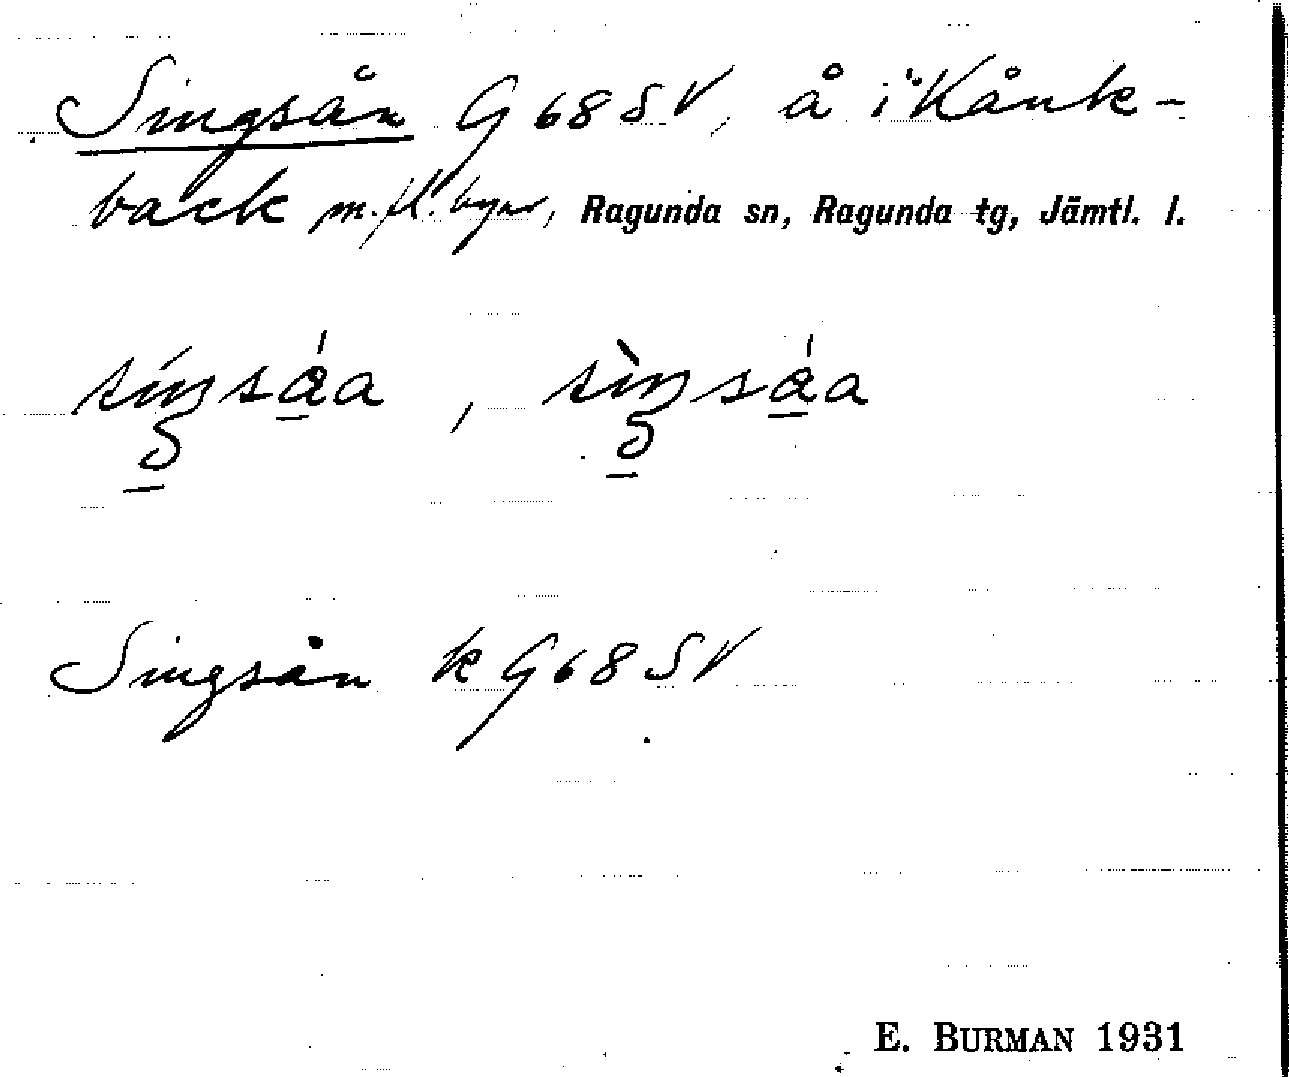 Singsån G 68 SV, å i Kånk-
back m.fl. byar, Ragunda sn, Ragunda tg, Jämtl. l.
Singsån k G 68 SV
E. BURMAN 1931